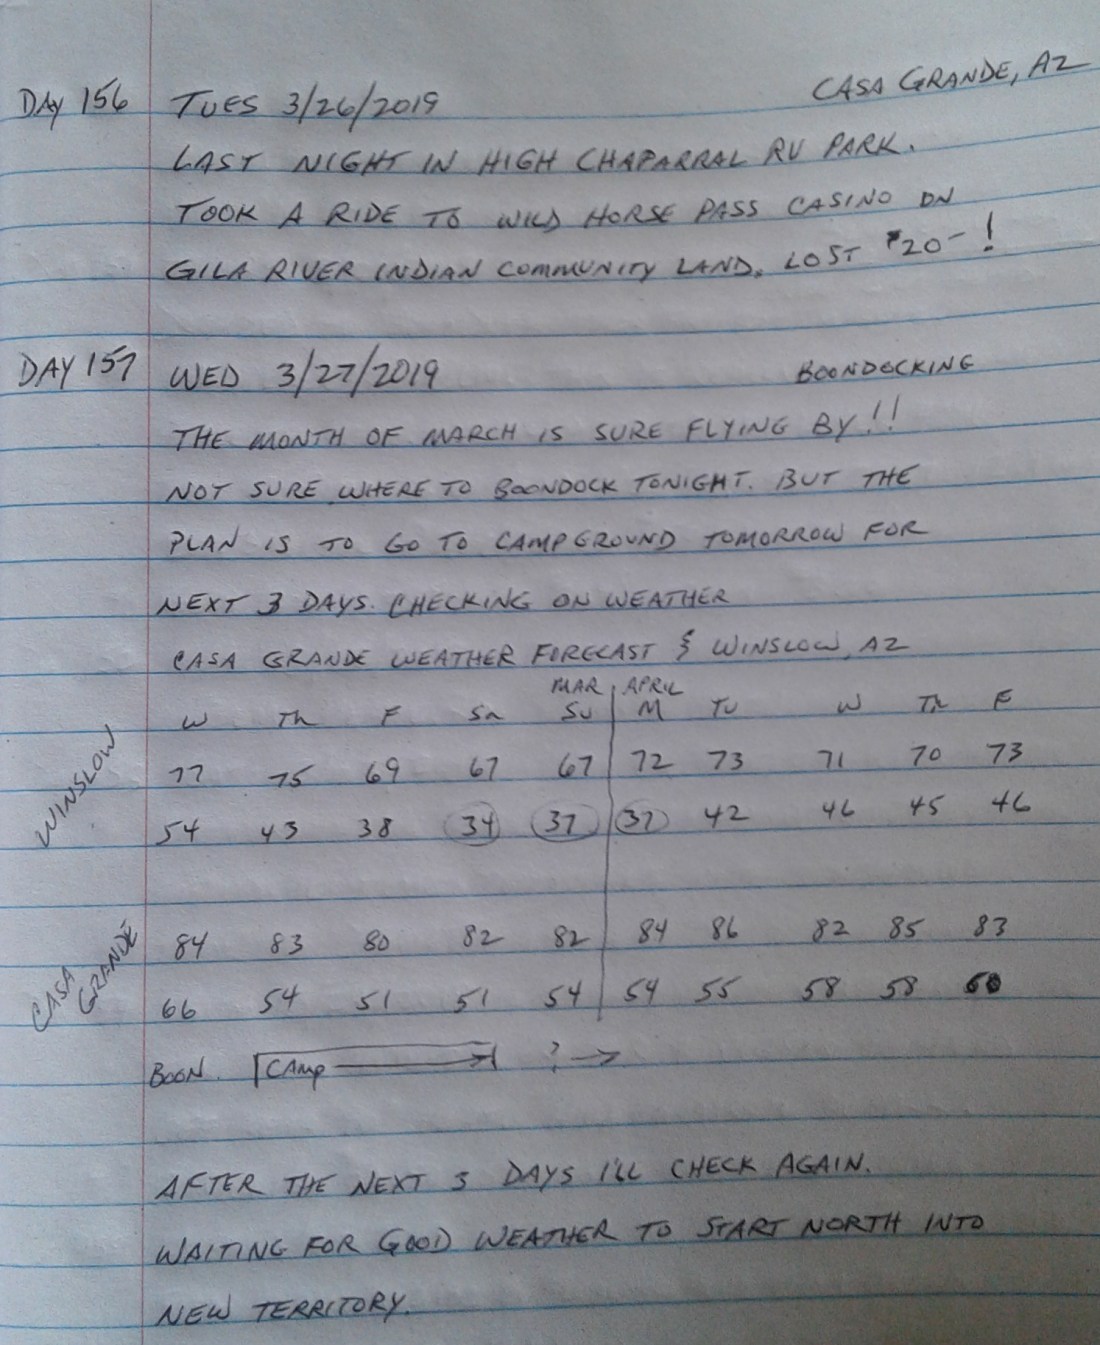 DAY 156 TUES 3/26/2019 CASA GRANDE, AZ
LAST NIGHT IN HIGH CHAPARRAL RV PARK.
TOOK A RIDE TO WILD HORSE PASS CASINO ON
GILA RIVER INDIAN COMMUNITY LAND. LOST $20-!
DAY 157 WED 3/27/2019 BOONDOCKING
THE MONTH OF MARCH IS SURE FLYING BY!!
NOT SURE WHERE TO BOONDOCK TONIGHT. BUT THE
PLAN IS TO GO TO CAMPGROUND TOMORROW FOR
NEXT 3 DAYS. CHECKING ON WEATHER
CASA GRANDE WEATHER FORECAST & WINSLOW, AZ
MAR APRIL
W Th F Sa SU M TU W Th F
WINSLOW
77 75 69 67 67 72 73 71 70 73
54 43 38 34 37 37 42 46 45 46
CASA GRANDE
84 83 80 82 82 84 86 82 85 83
66 54 51 51 54 54 55 58 58 60
BOON. CAMP ? →
AFTER THE NEXT 3 DAYS I'LL CHECK AGAIN.
WAITING FOR GOOD WEATHER TO START NORTH INTO
NEW TERRITORY.